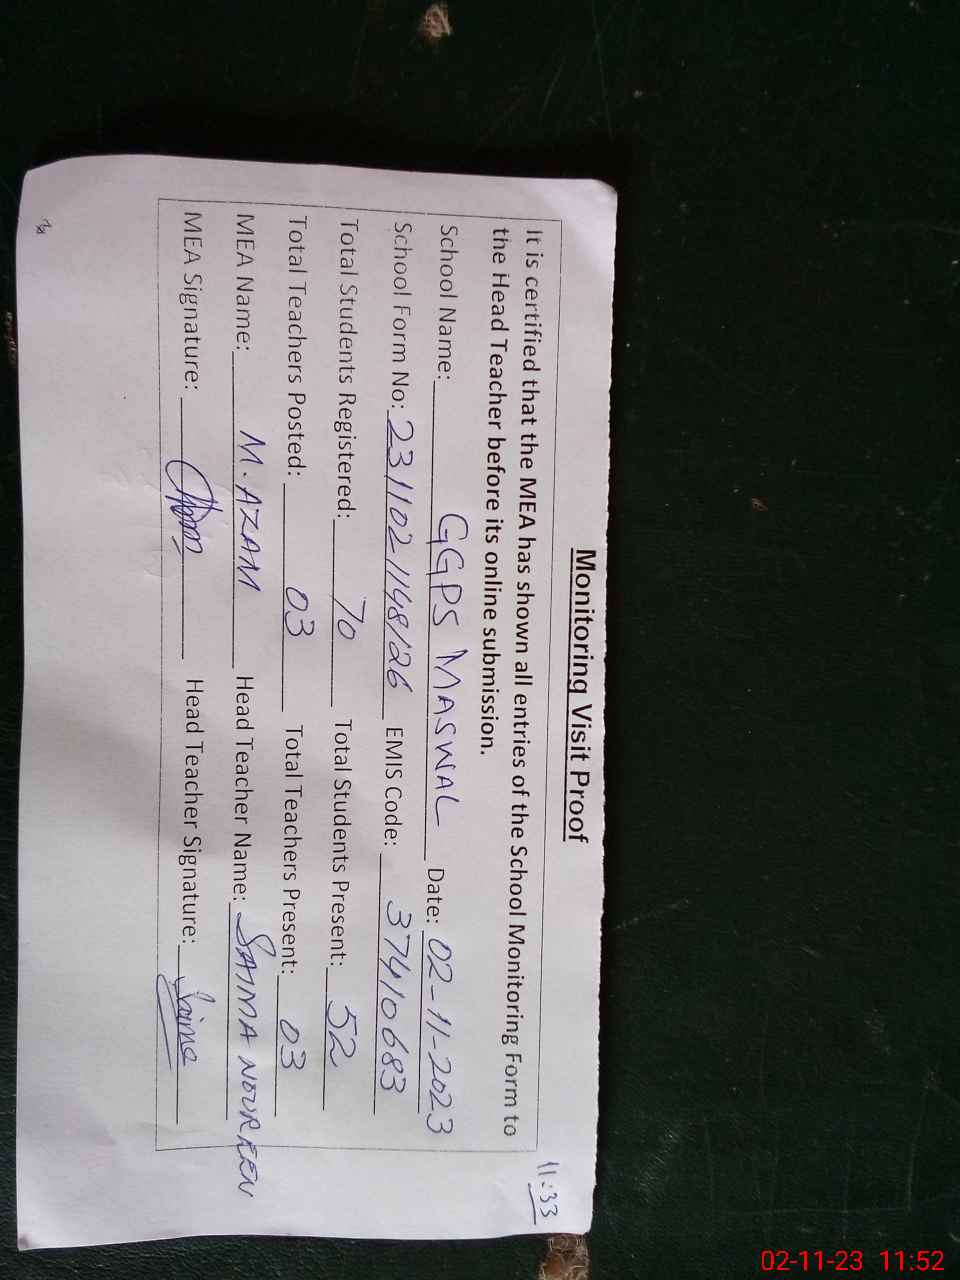 11:33
Monitoring Visit Proof
It is certified that the MEA has shown all entries of the School Monitoring Form to
the Head Teacher before its online submission.
School Name: GGPS MASWAL Date: 02-11-2023
School Form No: 2311021148126 EMIS Code: 37410683
Total Students Registered: 70 Total Students Present: 52
Total Teachers Posted: 03 Total Teachers Present: 03
MEA Name: M. AZAM Head Teacher Name: SAIMA NOUREEN
MEA Signature: Head Teacher Signature: Saima
02-11-23 11:52